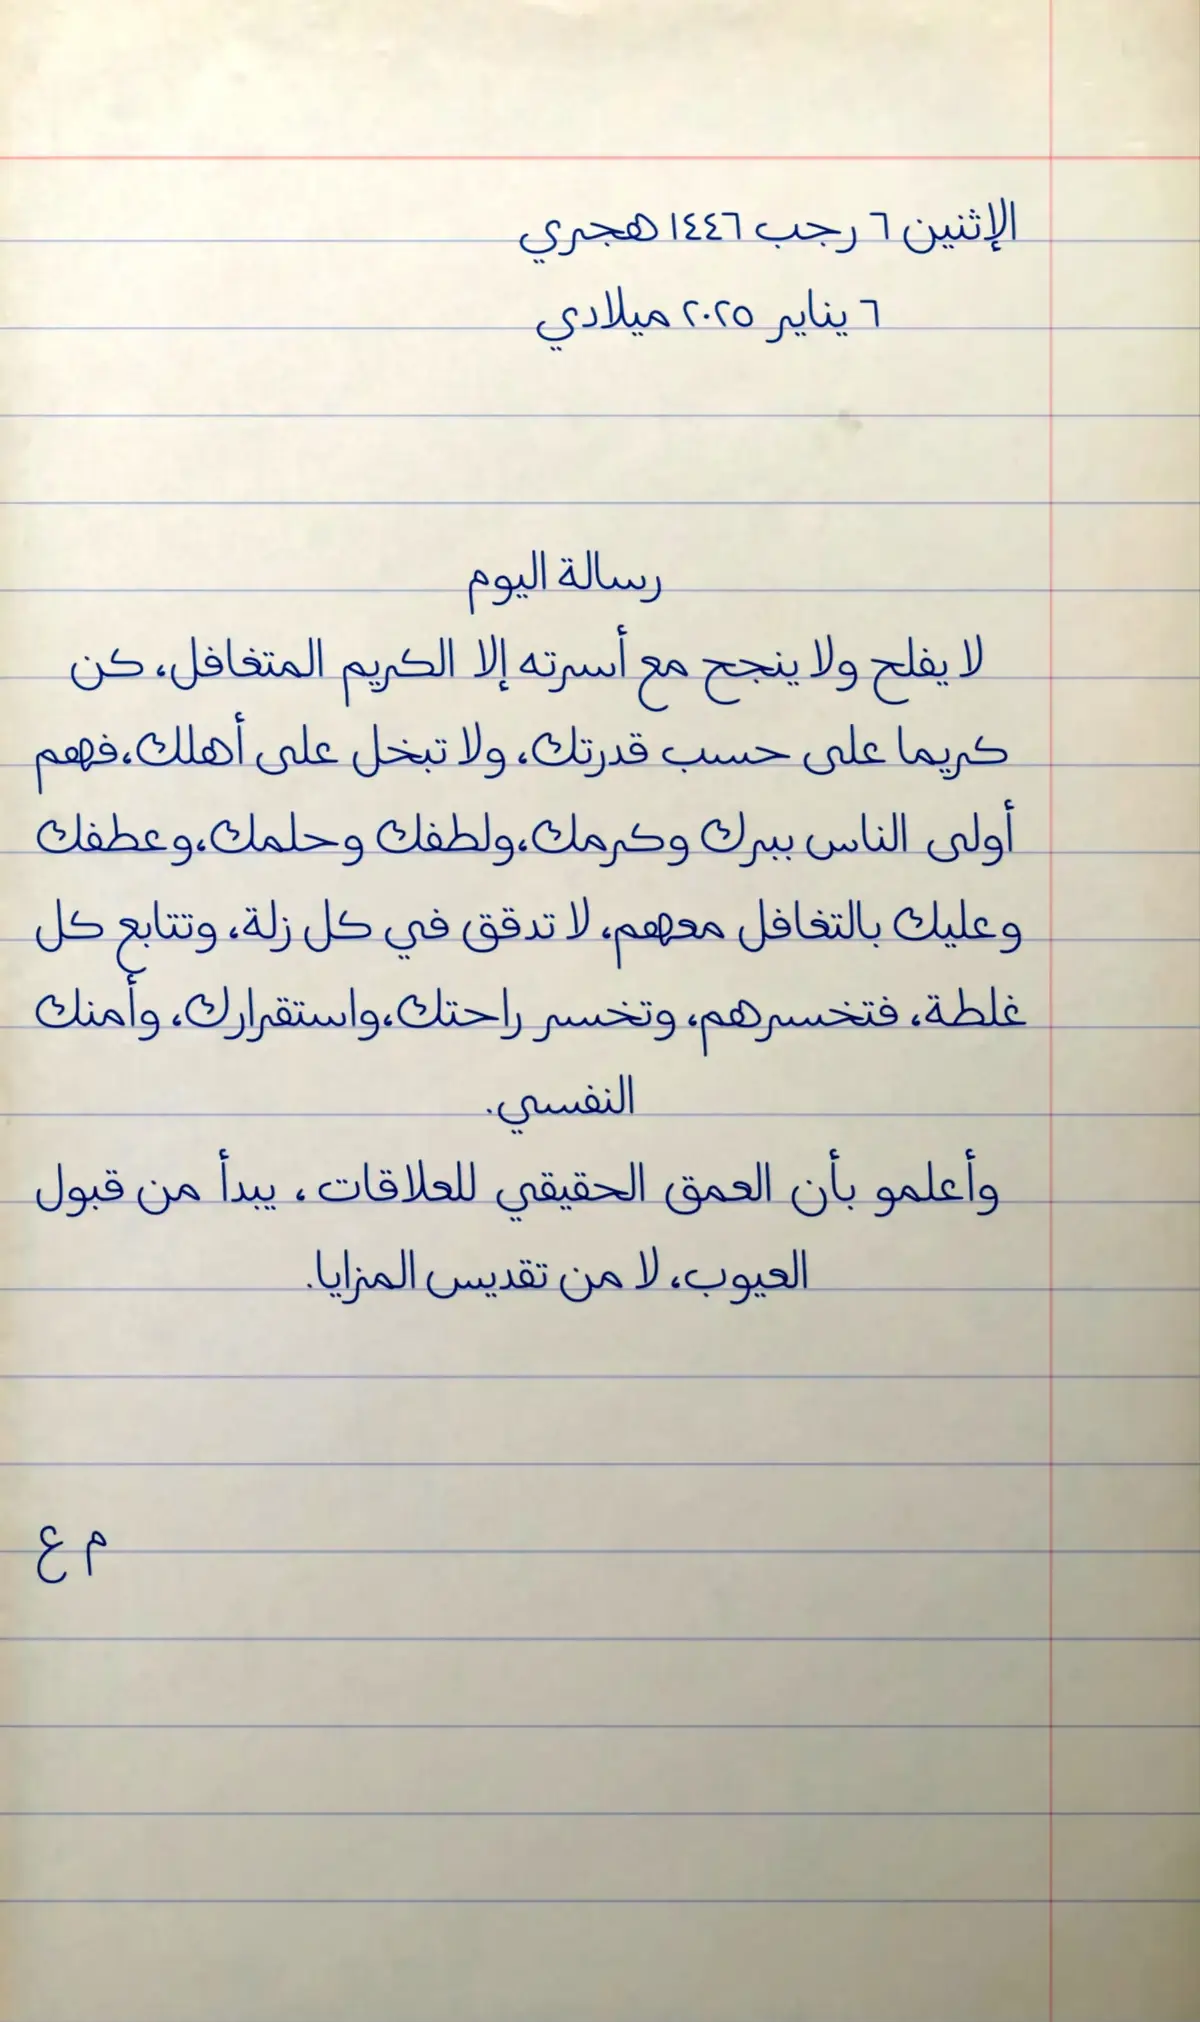 الإثنين ٦ رجب ١٤٤٦ هجري
٦ يناير ٢٠٢٥ ميلادي
رسالة اليوم
لا يفلح ولا ينجح مع أسرته إلا الكريم المتغافل، كن
كريما على حسب قدرتك، ولا تبخل على أهلك،فهم
أولى الناس ببرك وكرمك،ولطفك وحلمك،وعطفك
وعليك بالتغافل معهم، لا تدقق في كل زلة، وتتابع كل
غلطة، فتخسرهم، وتخسر راحتك،واستقرارك، وأمنك
النفسي.
وأعلمو بأن العمق الحقيقي للعلاقات ، يبدأ من قبول
العيوب، لا من تقديس المزايا.
م ع